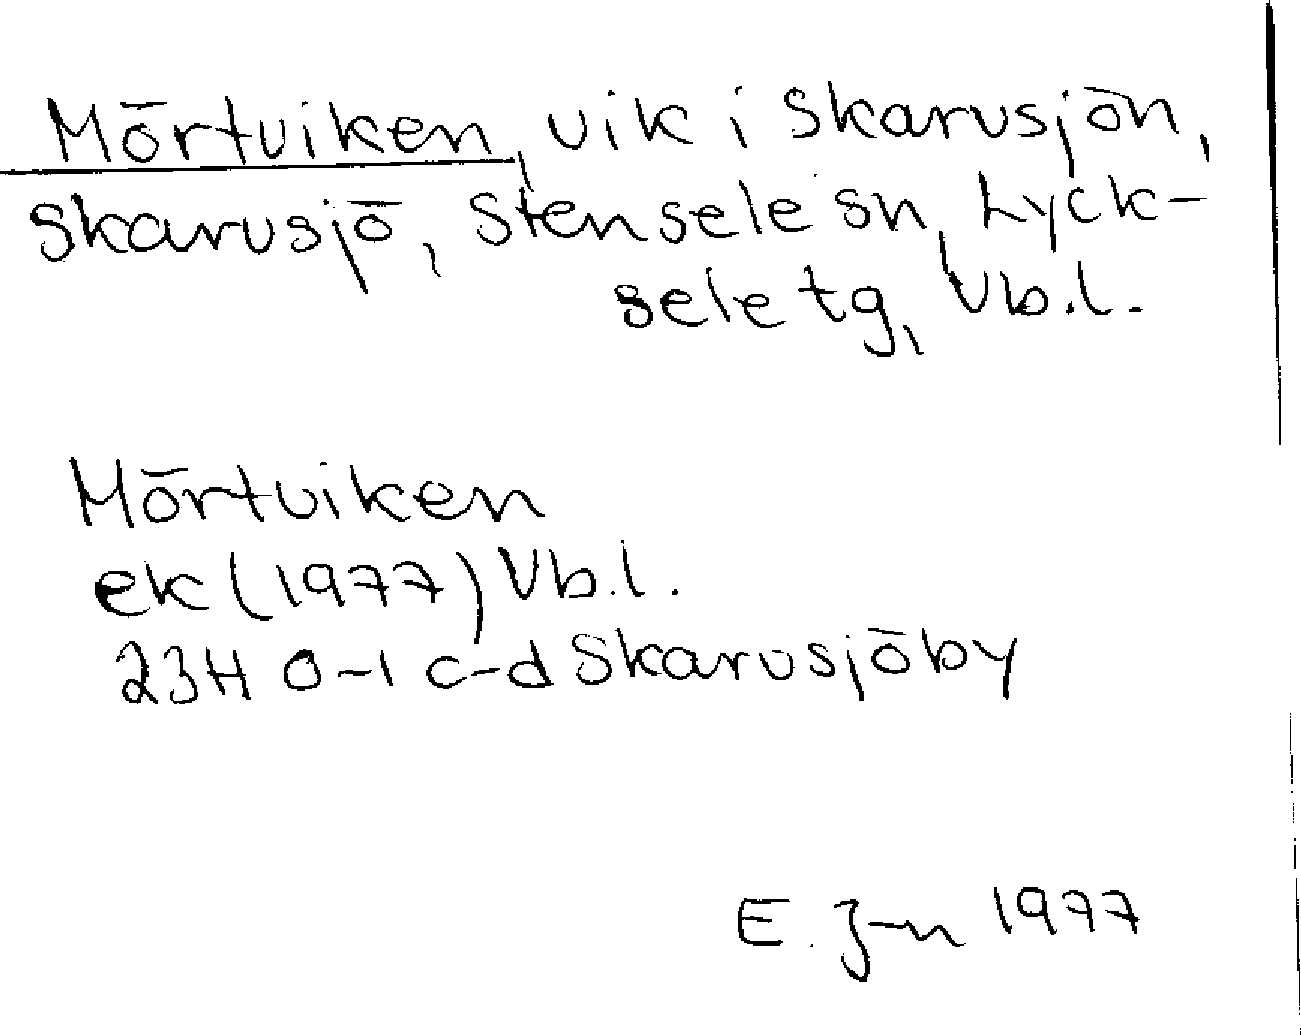 Mörtviken, vik i Skarvsjön,
Skarvsjö, Stensele sn, Lyck-
sele tg, Vb.l.
Mörtviken
ek (1977) Vb.l.
23H 0-1 c-d Skarvsjöby
E. J-n 1977